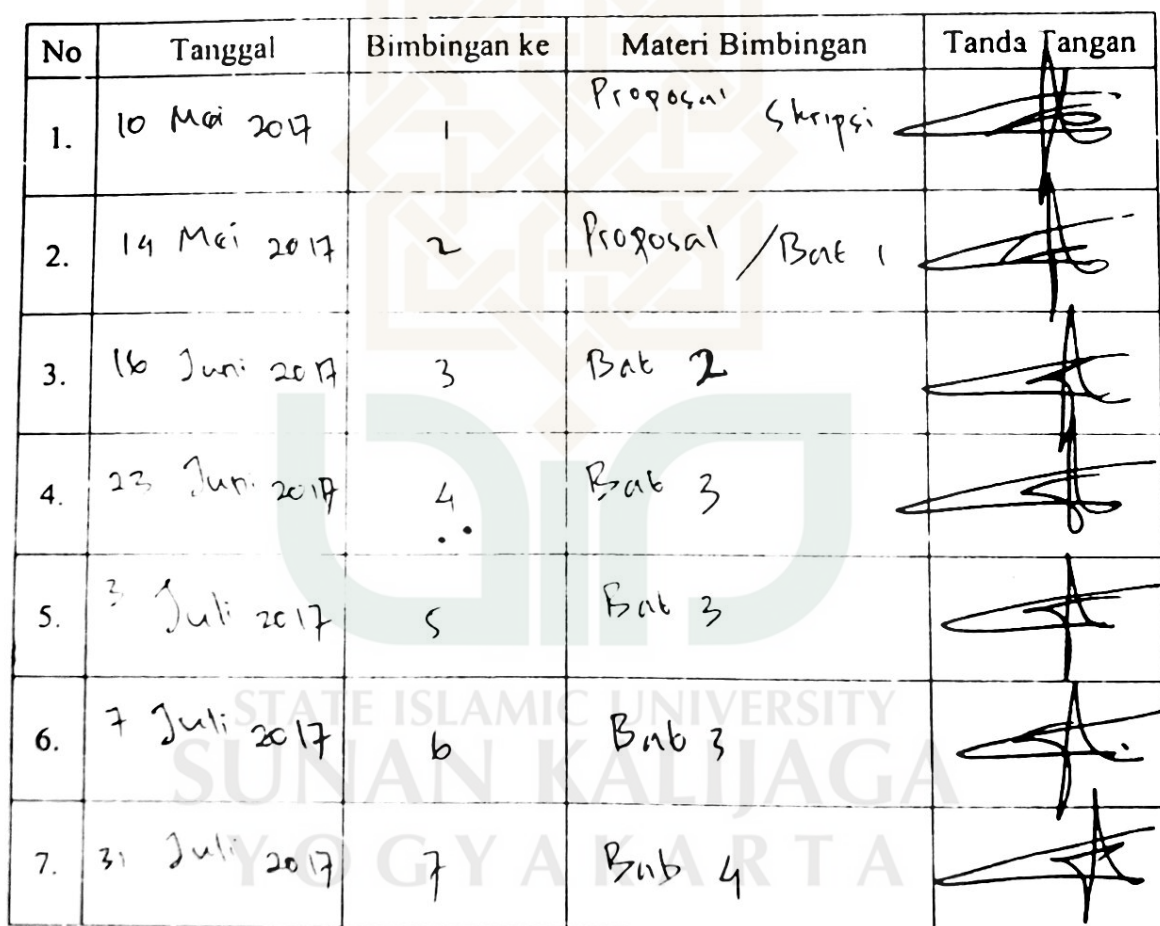 No Tanggal Bimbingan ke Materi Bimbingan Tanda Tangan
1. 10 Mei 2017 1 Proposal Skripsi
2. 14 Mei 2017 2 Proposal / Bab 1
3. 16 Juni 2017 3 Bab 2
4. 23 Juni 2017 4 Bab 3
5. 3 Juli 2017 5 Bab 3
6. 7 Juli 2017 6 Bab 3
7. 31 Juli 2017 7 Bab 4
STATE ISLAMIC UNIVERSITY
SUNAN KALIJAGA
YOGYAKARTA